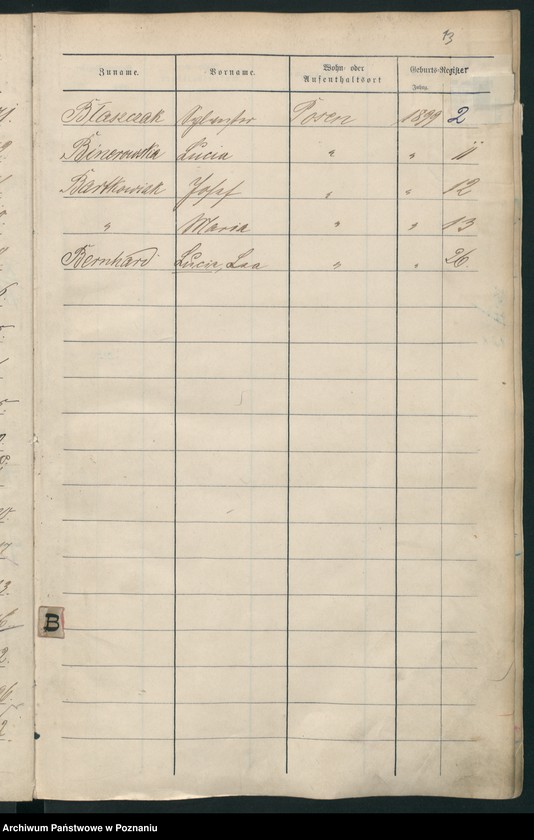 13
Zuname. Vorname. Wohn- oder Aufenthaltsort Geburts-Register
Jahrg.
Błaszczak Sylvester Posen 1899 2
Binerowska Lucia " " 11
Bartkowiak Josef " " 12
" Maria " " 13
Bernhard Lucie, Lea " " 26
B
Archiwum Państwowe w Poznaniu